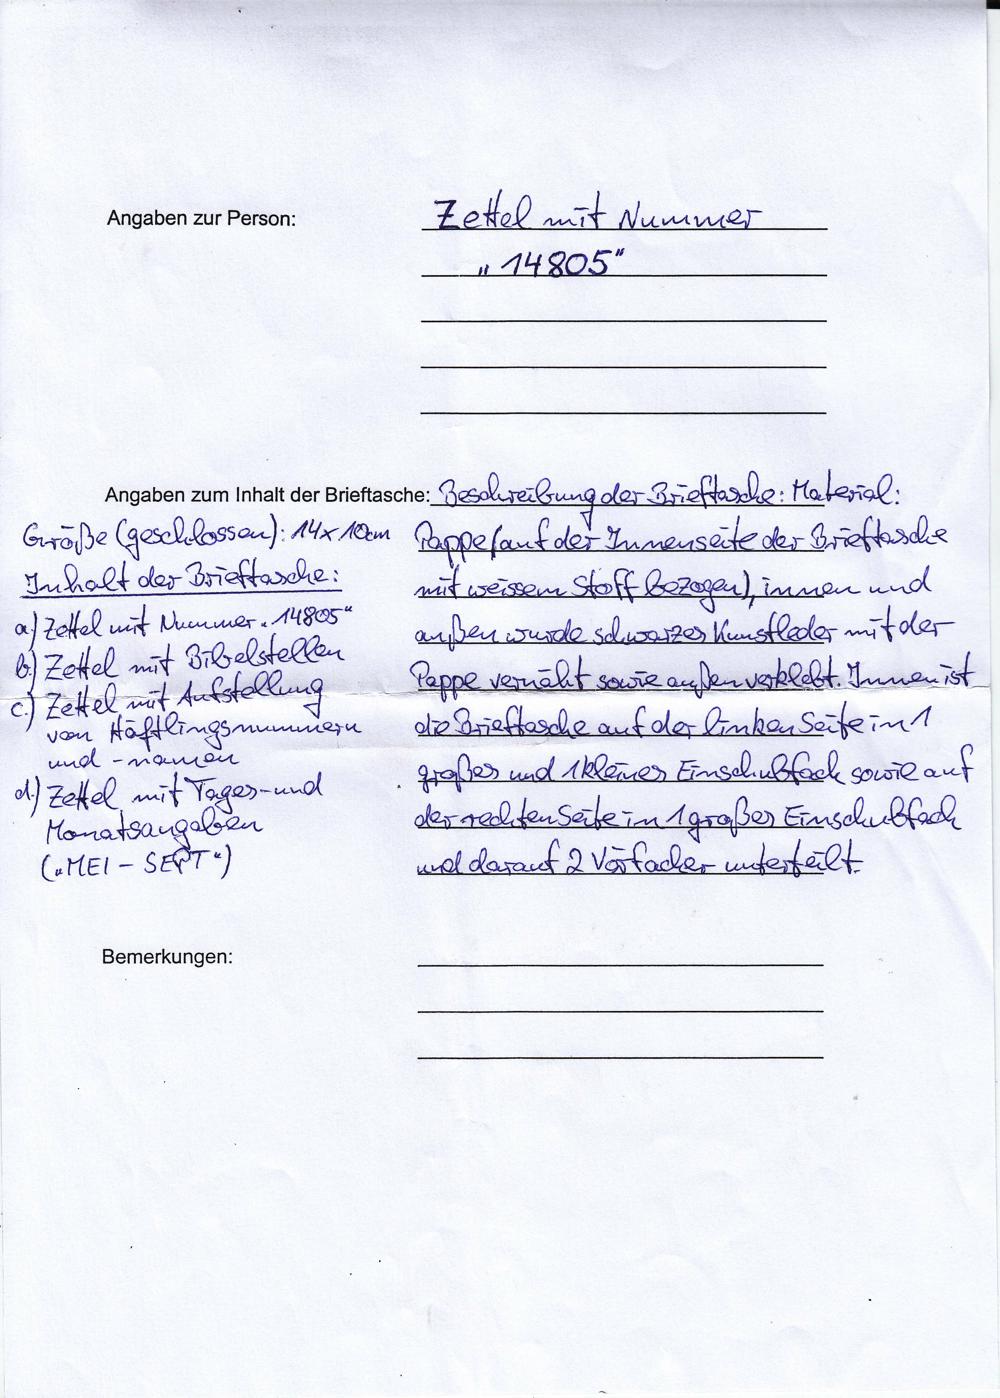 Angaben zur Person:
Zettel mit Nummer
„14805“
Angaben zum Inhalt der Brieftasche:
Beschreibung der Brieftasche: Material:
Pappe (auf der Innenseite der Brieftasche
mit weissem Stoff bezogen), innen und
außen wurde schwarzes Kunstleder mit der
Pappe vernäht sowie außen verklebt. Innen ist
die Brieftasche auf der linken Seite in 1
großes und 1 kleines Einschubfach sowie auf
der rechten Seite in 1 großes Einschubfach
und darauf 2 Vorfächer unterteilt.
Größe (geschlossen): 14x10cm
Inhalt der Brieftasche:
a) Zettel mit Nummer „14805“
b) Zettel mit Bibelstellen
c.) Zettel mit Aufstellung
von Häftlingsnummern
und -namen
d.) Zettel mit Tages- und
Monatsangaben
(„MEI - SEPT“)
Bemerkungen: